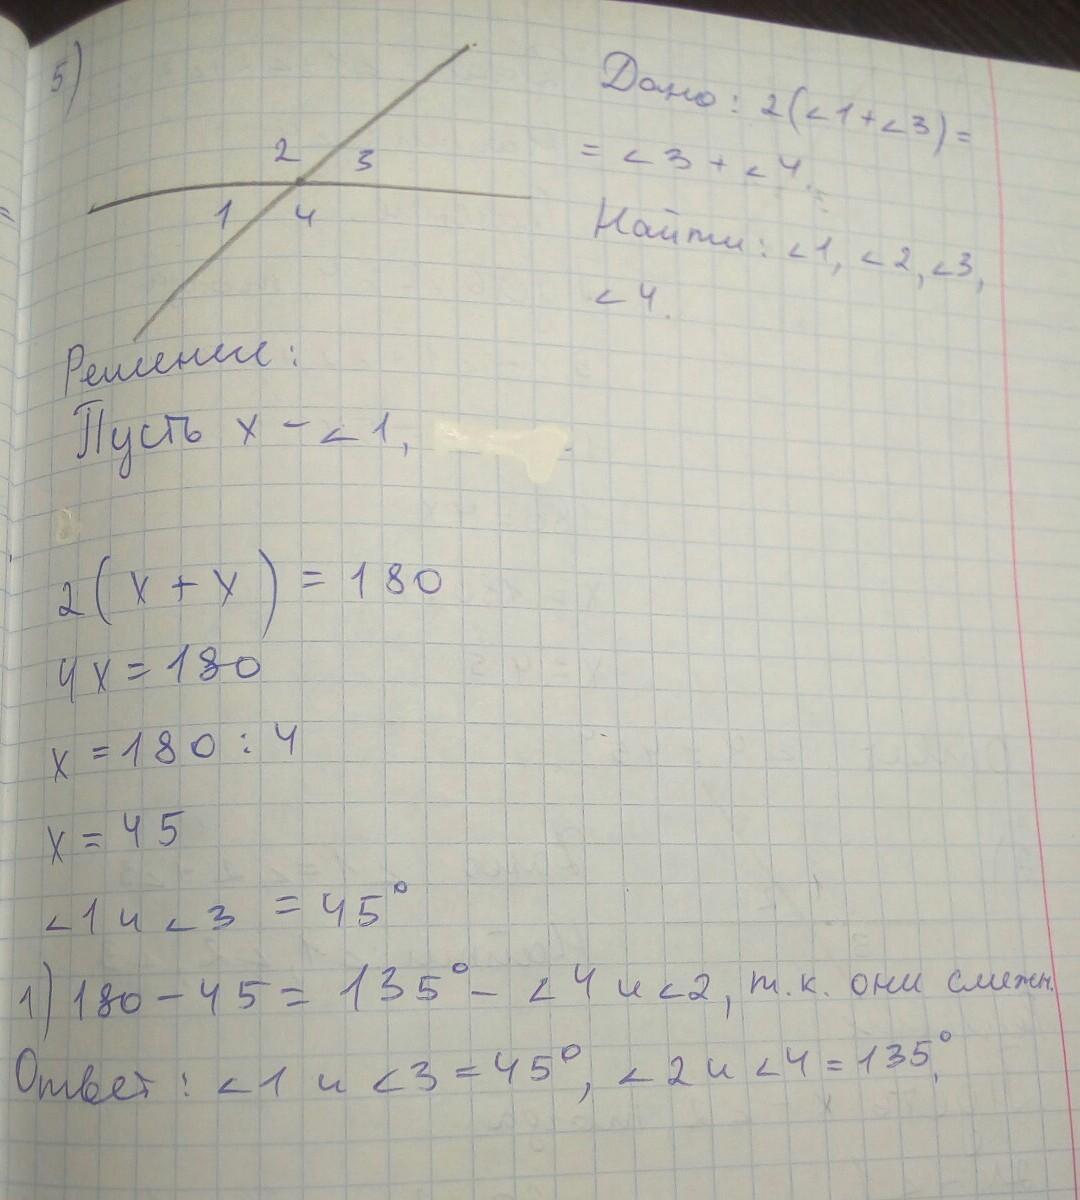 5)
2 3
1 4
Дано: 2(∠1+∠3)=
= ∠3 + ∠4.
Найти: ∠1, ∠2, ∠3,
∠4.
Решение:
Пусть x - ∠1,
2(x + x) = 180
4x = 180
x = 180 : 4
x = 45
∠1 и ∠3 = 45°
1) 180 - 45 = 135° - ∠4 и ∠2, т.к. они смежн.
Ответ: ∠1 и ∠3 = 45°, ∠2 и ∠4 = 135°.